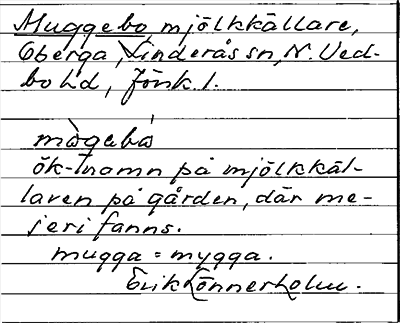 Muggebo, mjölkkällare,
Oberga, Linderås sn, N. Ved-
bo hd, Jönk. l.
mògebó
ök-namn på mjölkkäl-
laren på gården, där me-
jeri fanns.
mugga = mygga.
Erik Lönnerholm.